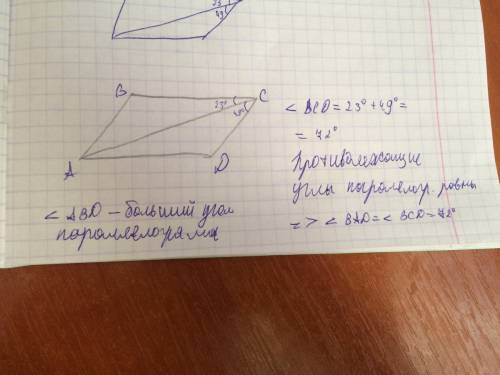 23°
49°
B
C
23°
49°
A
D
< BCD = 23° + 49° =
= 72°
Противолежащие
углы паролелогр. ровны
=> < BAD = < BCD = 72°
< ABD – больший угол
пароллелограма